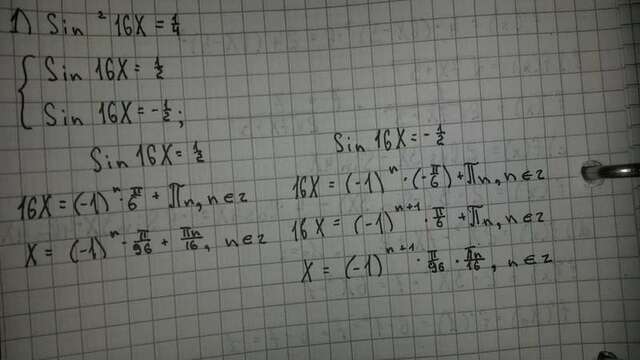 1) Sin² 16X = 1/4
{ Sin 16X = 1/2
Sin 16X = -1/2;
Sin 16X = 1/2
16X = (-1)ⁿ · π/6 + πn, n ∈ z
X = (-1)ⁿ · π/96 + πn/16, n ∈ z
Sin 16X = -1/2
16X = (-1)ⁿ · (-π/6) + πn, n ∈ z
16X = (-1)ⁿ⁺¹ · π/6 + πn, n ∈ z
X = (-1)ⁿ⁺¹ · π/96 · πn/16, n ∈ z